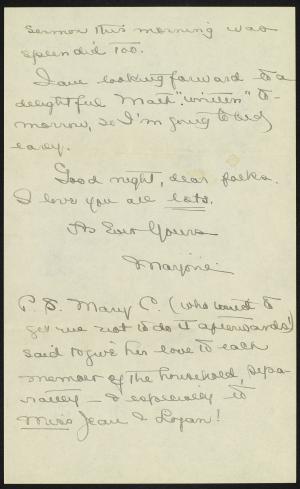 sermon this morning was
splendid too.
I am looking forward to a
delightful Math "written" to-
morrow, so I'm going to bed
early.
Good night, dear folks.
I love you all lots.
As Ever Yours
Marjorie
P. S. Mary C. (who
get me not to do it afterwards!)
said to give her love to each
member of the household, sepa-
rately — & especially to
Miss Jean & Logan!